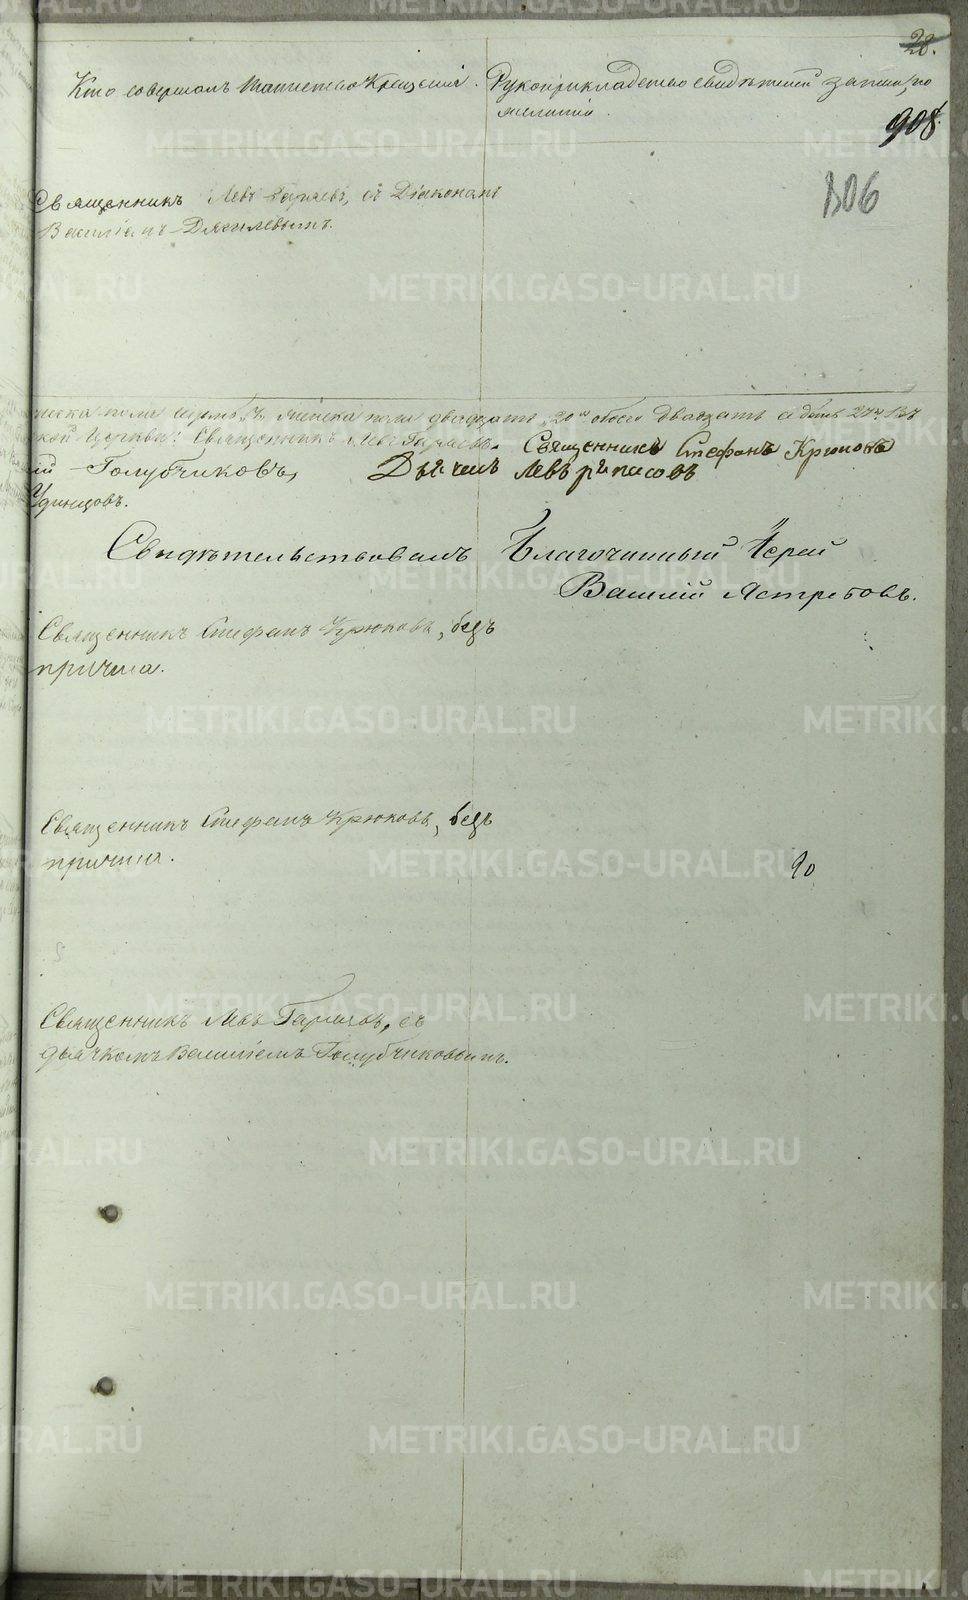 28.
Кто совершалъ таинство Крещенія. Рукоприкладство свидѣтелей записи, по
желанію.
908.
806
Священникъ Левъ Гаряевъ, съ Діакономъ
Василіемъ
пола двадцать „20“ обоего двадцать
кой Церкви: Священникъ Левъ Гаряевъ. Священникъ Стефанъ Крюковъ
ій Голубчиковъ, Дьячекъ Левъ
Удинцовъ.
Свидѣтельствовалъ Благочинный Іерей
Василій Ястребовъ.
Священникъ Стефанъ Крюковъ, безъ
причта.
Священникъ Стефанъ Крюковъ, безъ
причта.
90
Священникъ Левъ Гаряевъ, съ
дьячкомъ Василіемъ Голубчиковымъ.
METRIKI.GASO-URAL.RU